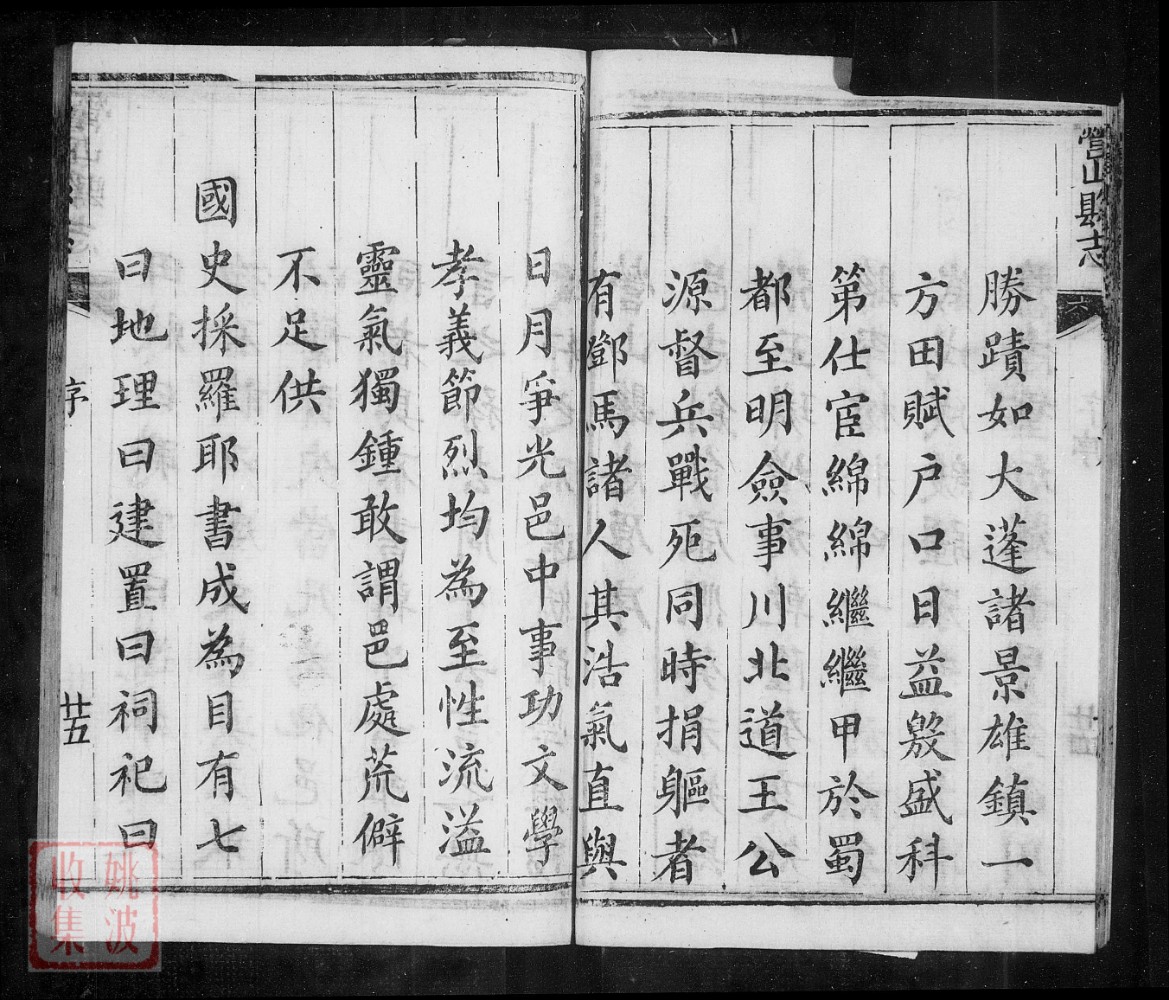 營山縣志
勝蹟如大蓬諸景雄鎮一
方田賦户口日益殷盛科
第仕宦綿綿繼繼甲於蜀
都至明僉事川北道王公
源督兵戰死同時捐軀者
有鄧馬諸人其浩氣直與
日月爭光邑中事功文學
孝義節烈均為至性流溢
靈氣獨鍾敢謂邑處荒僻
不足供
國史採羅耶書成為目有七
曰地理曰建置曰祠祀曰
序
廿五
姚波
收集